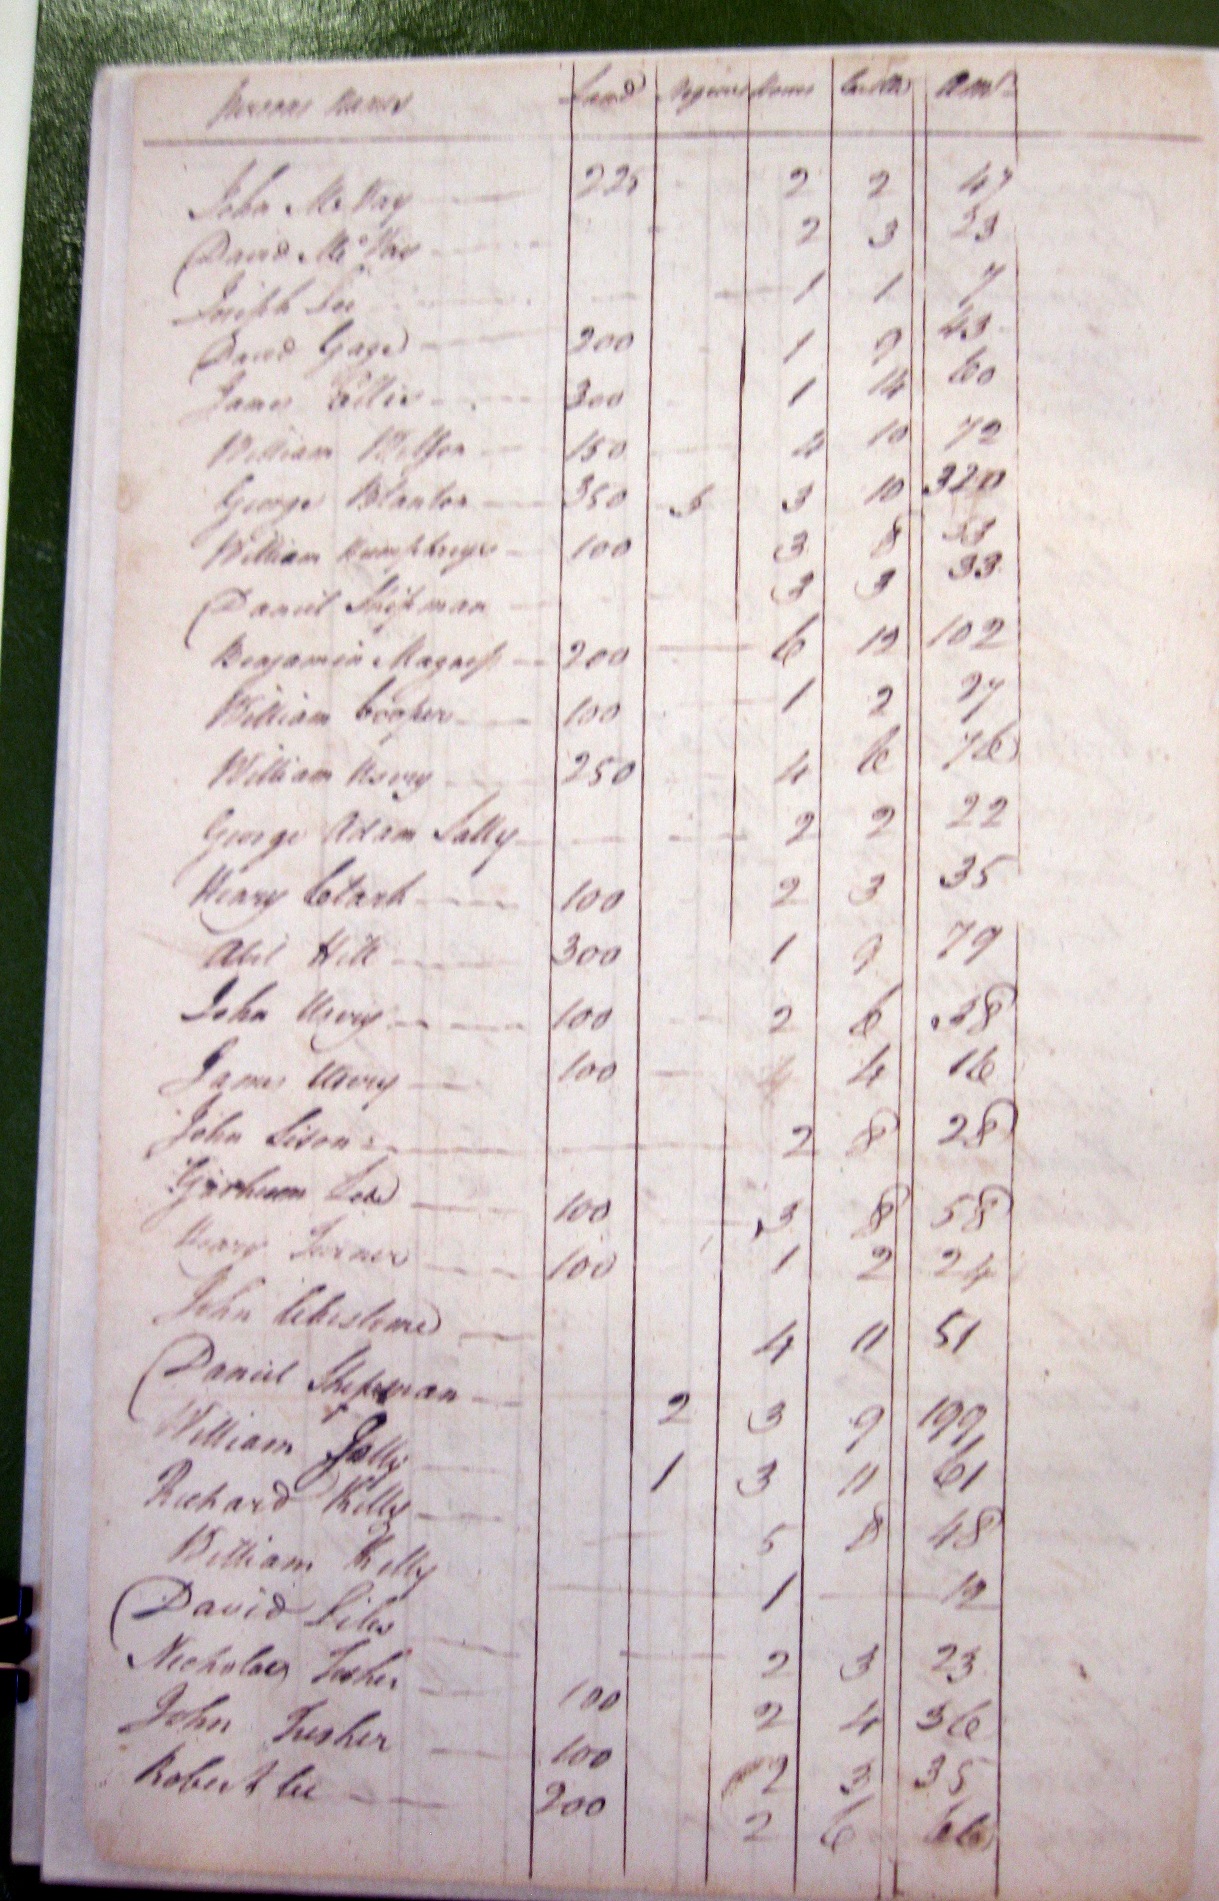 Persons Names Land Negroes Horses Cattle Amt
John McVay 225 2 2 47
David McVay 2 3 23
Joseph Lee 1 1 7
David Gage 200 1 9 43
James 300 1 14 60
William Willson 150 4 10 72
George Blanton 350 5 3 10 320
William Humphreys 100 3 8 53
Daniel Shipman 3 3 33
Benjamin Magness 200 6 19 102
William Cooper 100 1 2 27
William Usrey 250 4 6 76
George Adam Sally 2 2 22
Henry Clark 100 2 3 35
Abel Hill 300 1 9 79
John Usrey 100 2 6 38
James Usrey 100 4 16
John Sison 2 8 28
100 3 8 58
Henry Turner 100 1 2 24
John 4 11 51
Daniel Shipman 2 3 9 199
William Jolly 1 3 11 61
Richard Kelly 5 8 48
William Kelly 1 12
David Liles 2 3 23
Nicholas Fisher 100 2 4 36
John Fisher 100 2 3 35
Robert Lee 200 2 6 66